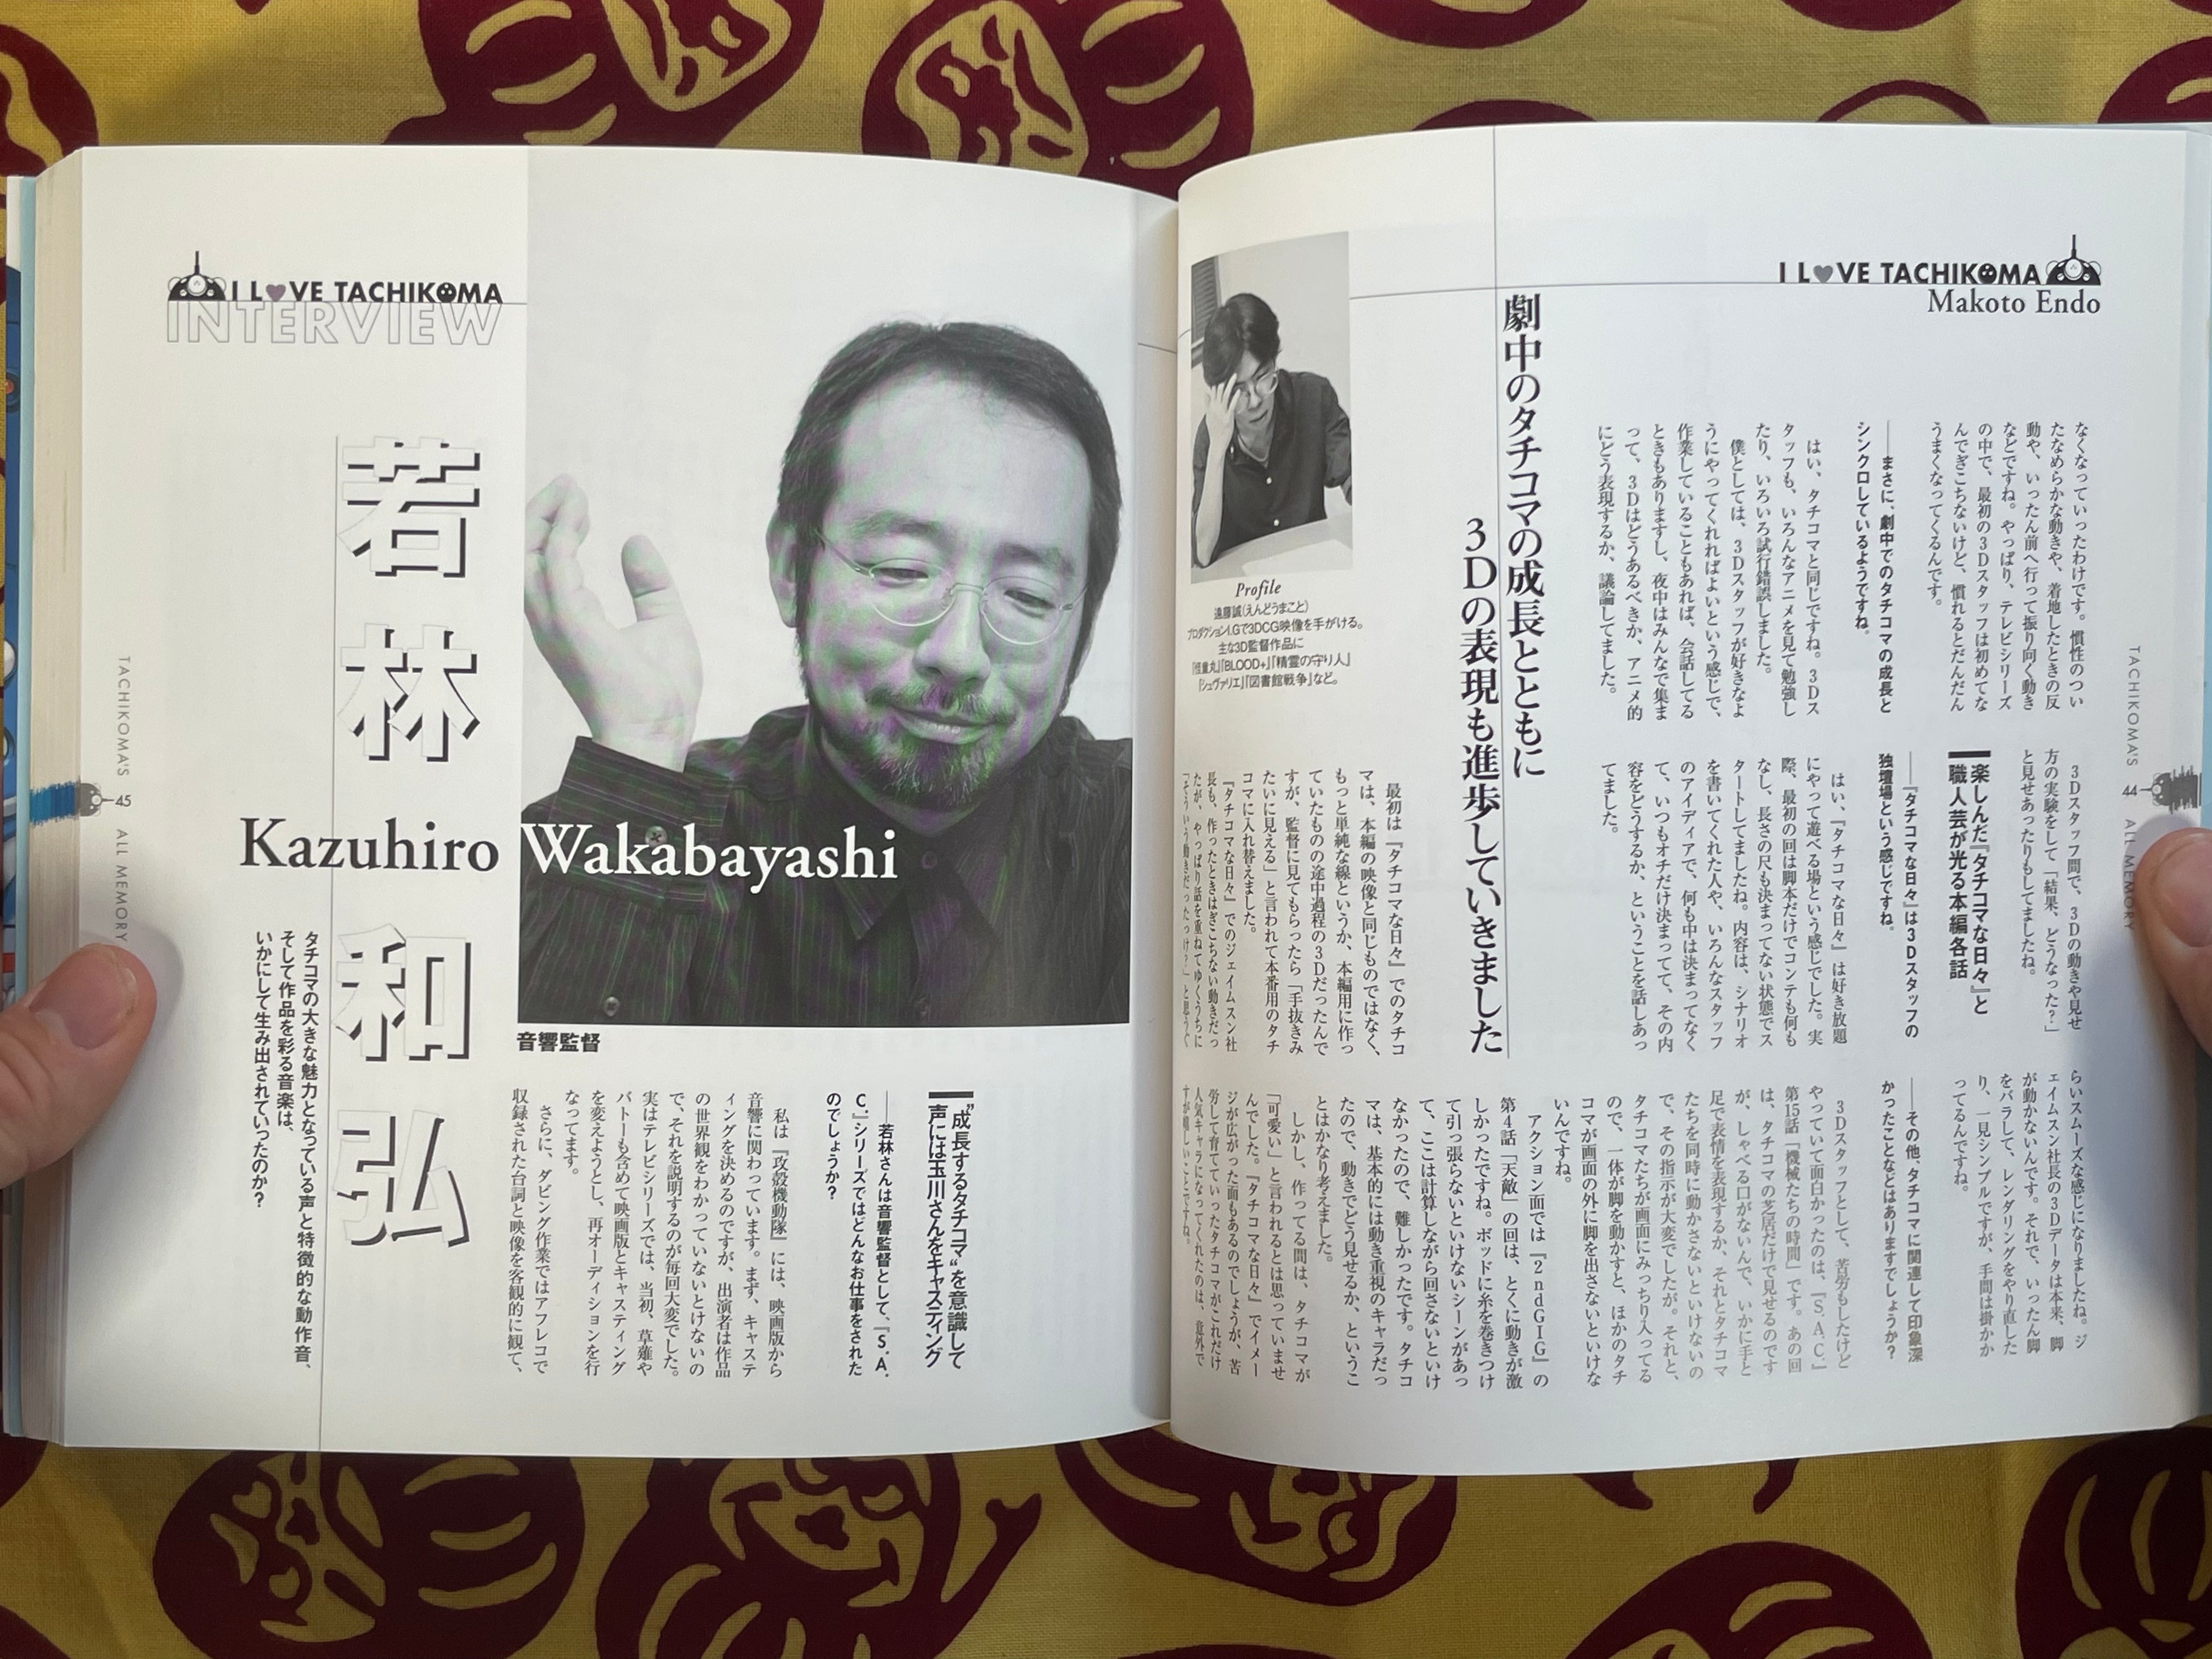 I L♥VE TACHIKOMA
Makoto Endo
なくなっていったわけです。慣性のつい
たなめらかな動きや、着地したときの反
動や、いったん前へ行って振り向く動き
などですね。やっぱり、テレビシリーズ
の中で、最初の3Dスタッフは初めてな
んでぎこちないけど、慣れるとだんだん
うまくなってくるんです。
――まさに、劇中でのタチコマの成長と
シンクロしているようですね。
はい、タチコマと同じですね。3Dス
タッフも、いろんなアニメを見て勉強し
たり、いろいろ試行錯誤しました。
僕としては、3Dスタッフが好きなよ
うにやってくれればよいという感じで、
作業していることもあれば、会話してる
ときもありますし、夜中はみんなで集ま
って、3Dはどうあるべきか、アニメ的
にどう表現するか、議論してました。
3Dスタッフ間で、3Dの動きや見せ
方の実験をして「結果、どうなった?」
と見せあったりもしてましたね。
楽しんだ『タチコマな日々』と
職人芸が光る本編各話
――『タチコマな日々』は3Dスタッフの
独壇場という感じですね。
はい、『タチコマな日々』は好き放題
にやって遊べる場という感じでした。実
際、最初の回は脚本だけでコンテも何も
なし、長さの尺も決まってない状態でス
タートしてましたね。内容は、シナリオ
を書いてくれた人や、いろんなスタッフ
のアイディアで、何も中は決まってなく
て、いつもオチだけ決まってて、その内
容をどうするか、ということを話しあっ
てました。
劇中のタチコマの成長とともに
3Dの表現も進歩していきました
Profile
遠藤誠(えんどうまこと)
プロダクションI.Gで3DCG映像を手がける。
主な3D監督作品に
『怪童丸』『BLOOD+』『精霊の守り人』
『シュヴァリエ』『図書館戦争』など。
最初は『タチコマな日々』でのタチコ
マは、本編の映像と同じものではなく、
もっと単純な線というか、本編用に作っ
ていたものの途中過程の3Dだったんで
すが、監督に見てもらったら「手抜きみ
たいに見える」と言われて本番用のタチ
コマに入れ替えました。
『タチコマな日々』でのジェイムスン社
長も、作ったときはぎこちない動きだっ
たが、やっぱり話を重ねてゆくうちに
「そういう動きだったっけ?」と思うぐ
らいスムーズな感じになりましたね。ジ
ェイムスン社長の3Dデータは本来、脚
が動かないんです。それで、いったん脚
をバラして、レンダリングをやり直した
り、一見シンプルですが、手間は掛かか
ってるんですね。
――その他、タチコマに関連して印象深
かったことなどはありますでしょうか?
3Dスタッフとして、苦労もしたけど
やっていて面白かったのは、『S.A.C.』
第15話「機械たちの時間」です。あの回
は、タチコマの芝居だけで見せるのです
が、しゃべる口がないんで、いかに手と
足で表情を表現するか、それとタチコマ
たちを同時に動かさないといけないの
で、その指示が大変でしたが。それと、
タチコマたちが画面にみっちり入ってる
ので、一体が脚を動かすと、ほかのタチ
コマが画面の外に脚を出さないといけな
いんですね。
アクション面では『2ndGIG』の
第4話「天敵」の回は、とくに動きが激
しかったですね。ポッドに糸を巻きつけ
て引っ張らないといけないシーンがあっ
て、ここは計算しながら回さないといけ
なかったので、難しかったです。タチコ
マは、基本的には動き重視のキャラだっ
たので、動きでどう見せるか、というこ
とはかなり考えました。
しかし、作ってる間は、タチコマが
「可愛い」と言われるとは思っていませ
んでした。『タチコマな日々』でイメー
ジが広がった面もあるのでしょうが、苦
労して育てていったタチコマがこれだけ
人気キャラになってくれたのは、意外で
すが嬉しいことですね。
TACHIKOMA'S 44 ALL MEMORY
I L♥VE TACHIKOMA
INTERVIEW
若林和弘
Kazuhiro Wakabayashi
音響監督
タチコマの大きな魅力となっている声と特徴的な動作音、
そして作品を彩る音楽は、
いかにして生み出されていったのか?
"成長するタチコマ"を意識して
声には玉川さんをキャスティング
――若林さんは音響監督として、『S.A.
C.』シリーズではどんなお仕事をされた
のでしょうか?
私は『攻殻機動隊』には、映画版から
音響に関わっています。まず、キャステ
ィングを決めるのですが、出演者は作品
の世界観をわかっていないとけないの
で、それを説明するのが毎回大変でした。
実はテレビシリーズでは、当初、草薙や
バトーも含めて映画版とキャスティング
を変えようとし、再オーディションを行
なってます。
さらに、ダビング作業ではアフレコで
収録された台詞と映像を客観的に観て、
TACHIKOMA'S 45 ALL MEMORY